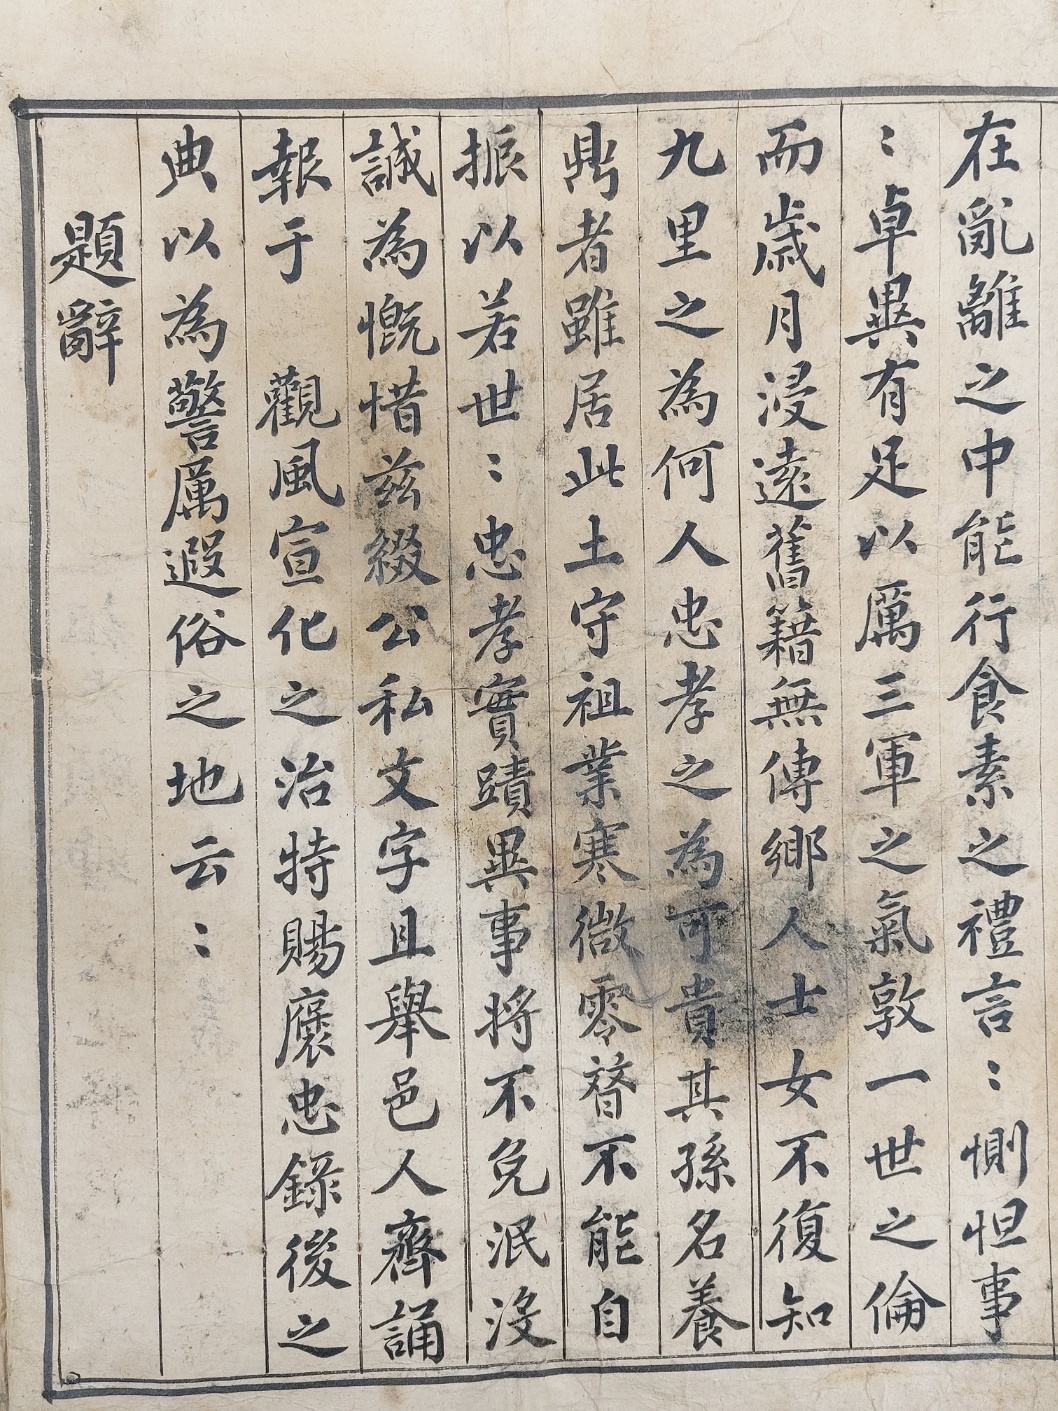 在亂離之中能行食素之禮言〻惻怛事
〻卓異有足以厲三軍之氣敦一世之倫
而歲月浸遠舊籍無傳鄉人士女不復知
九里之為何人忠孝之為可貴其孫名養
鼎者雖居此土守祖業寒微零替不能自
振以若世〻忠孝實蹟異事將不免泯沒
誠為慨惜茲綴公私文字且舉邑人齊誦
報于 觀風宣化之治特賜褒忠錄後之
典以為警厲遐俗之地云〻
題辭